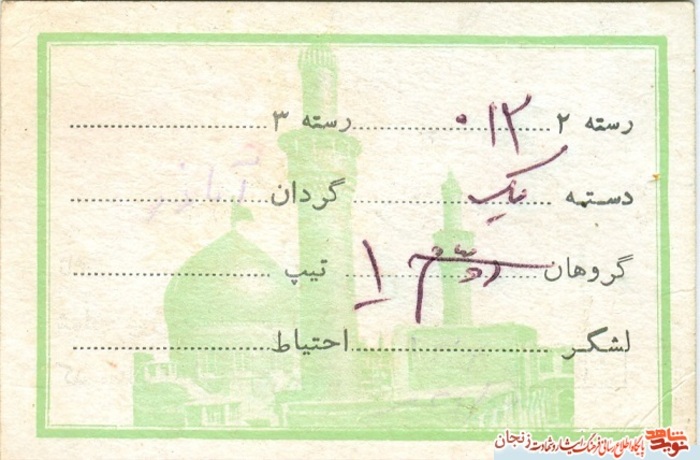 رسته ۲ ۰۱۳ رسته ۳
دسته یک گردان
گروهان ۱ تیپ
لشکر احتیاط
نوید شاهد پایگاه اطلاع رسانی فرهنگ ایثار و شهادت زنجان